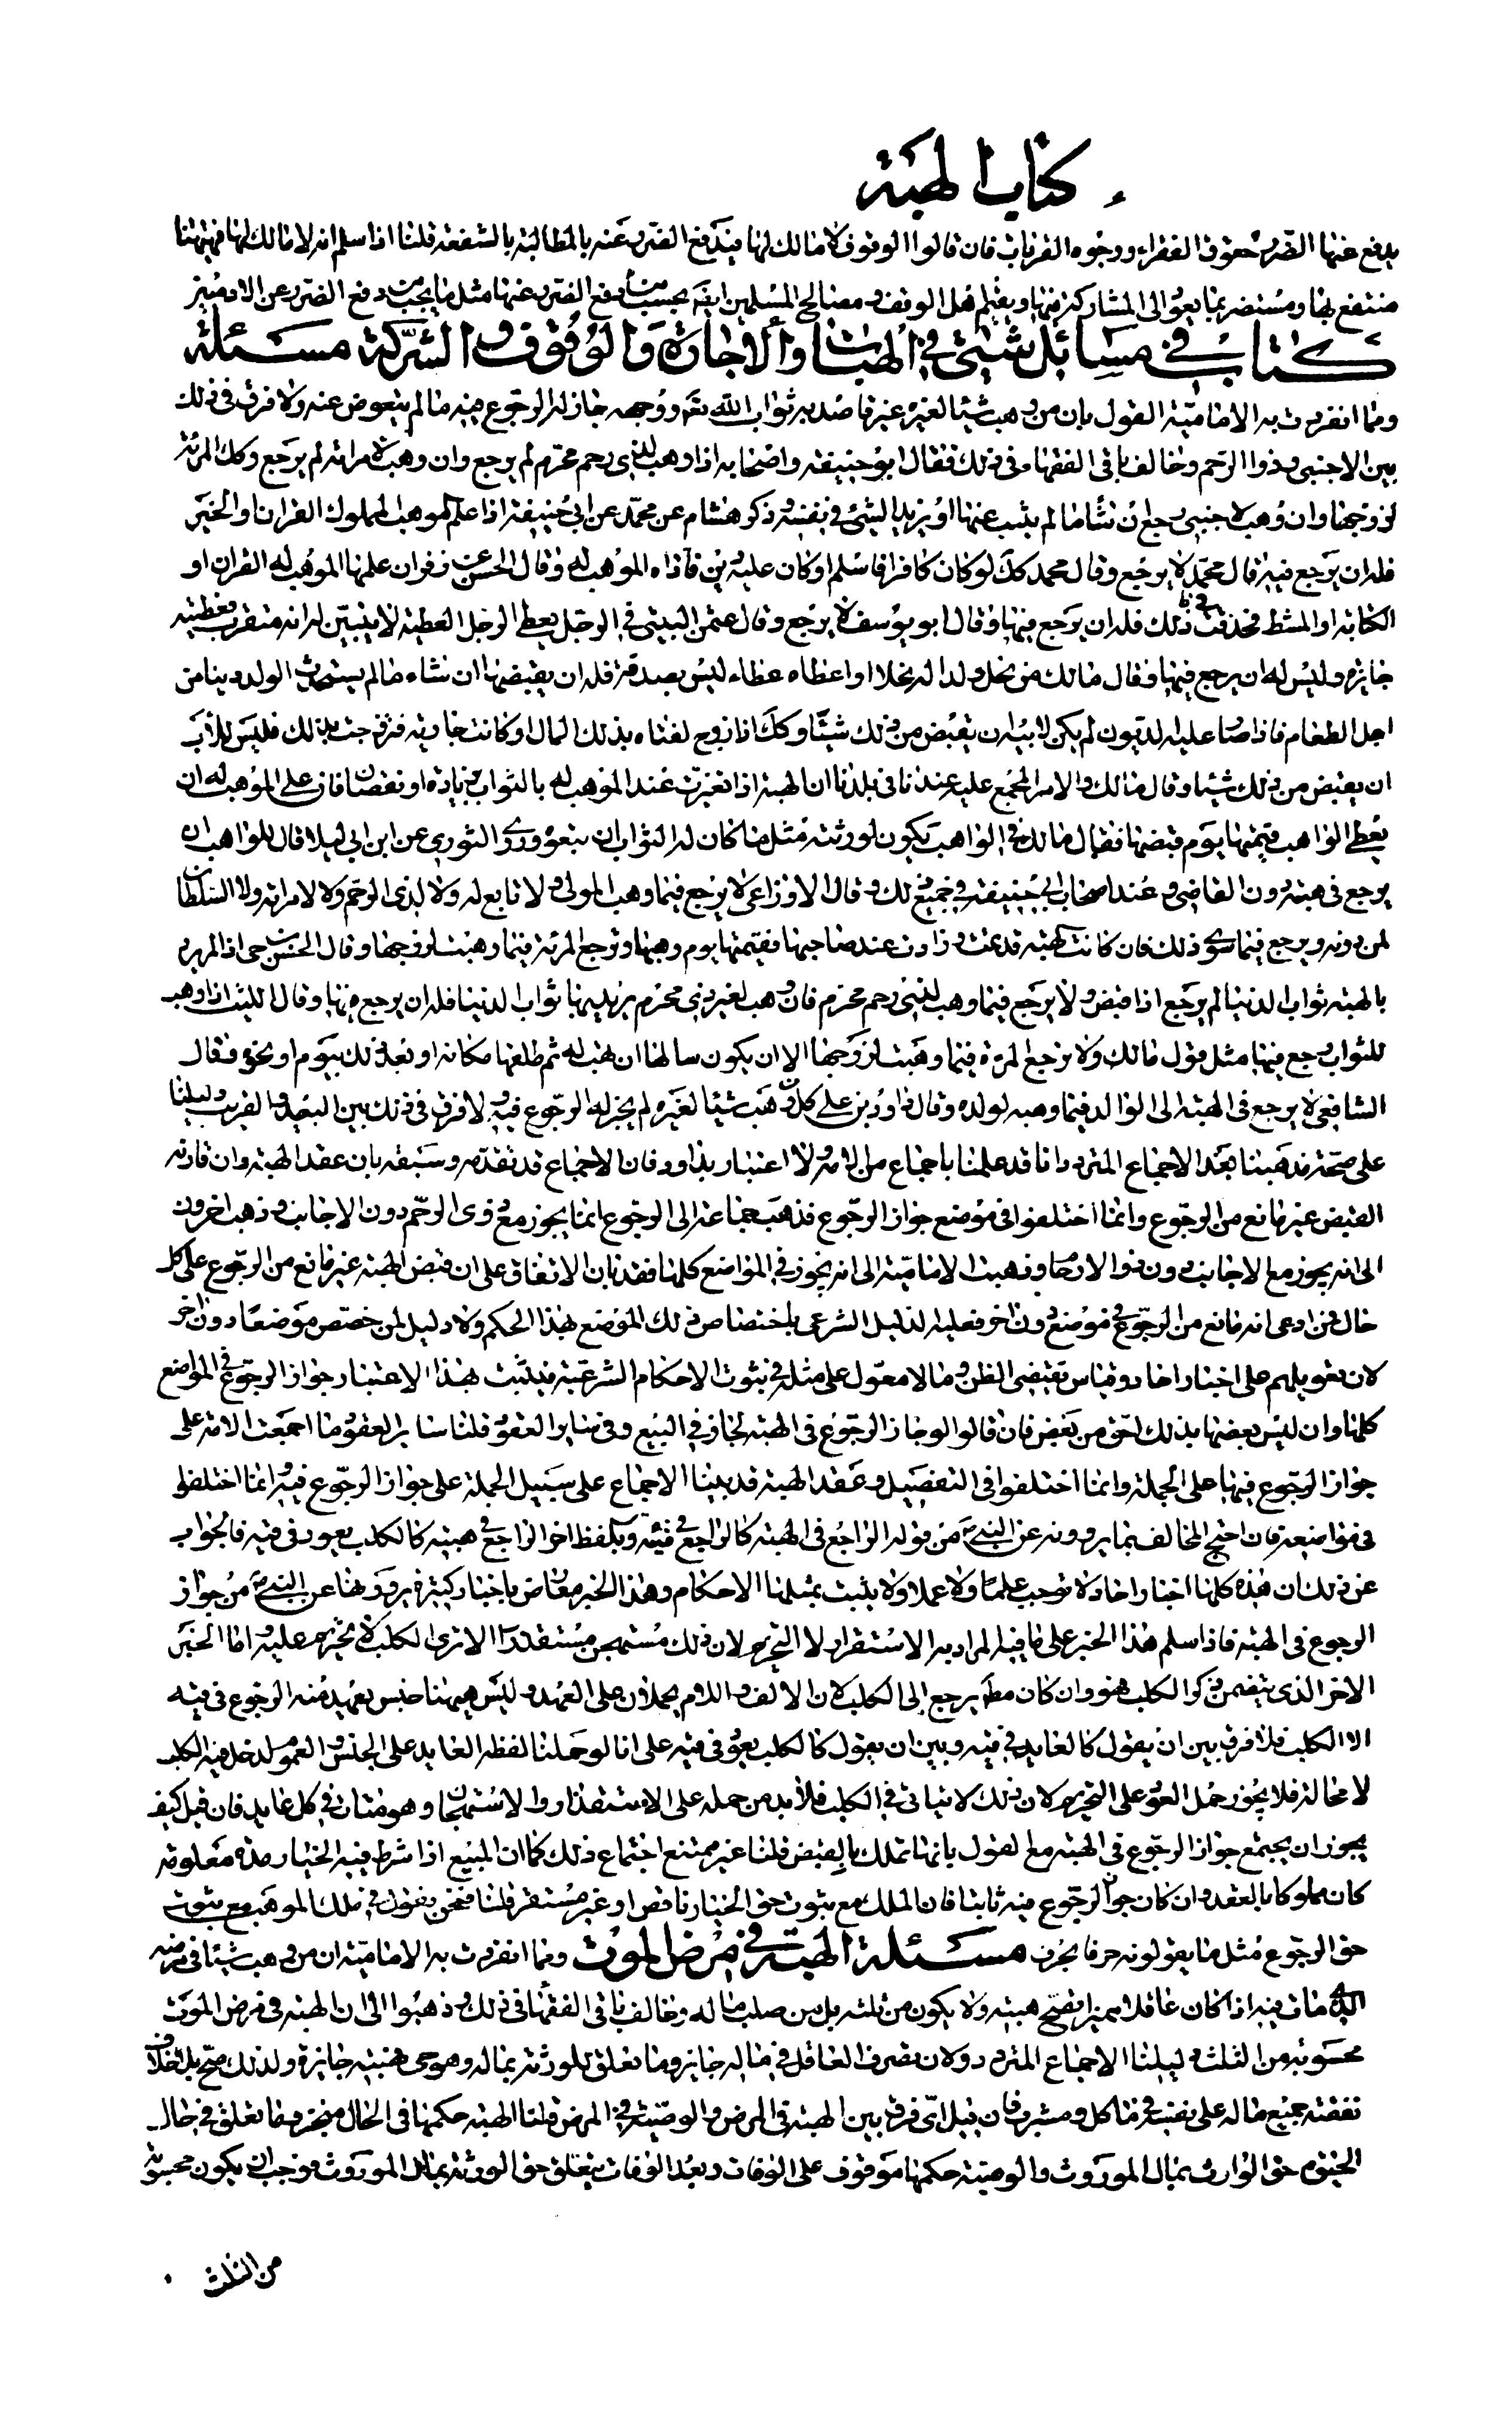 كتاب الهبة
يدفع عنها الضرر حقوق الفقراء ووجوه القربات فان قالوا الوقوف لا مالك لها فيدفع الضرر عنه بالمطالبة بالشفعة قلنا اذا سلم انه لا مالك لها فهيهنا
منتفع بها ومستضر بما يعود الى المشاركة فيها ويقيم هل الوقف ومصالح المسلمين ايضا يجب دفع الضرر عنها مثل ما يجب دفع الضرر عن الادميين
كتاب في مسائل شتى في الهبات والاجارة والوقوف والشركة مسئلة
ومما انفردت به الامامية القول بان من وهب شيئا لغيره غير قاصد به ثواب الله تعالى ووجهه جاز له الرجوع فيه ما لم يتعوض عنه ولا فرق في ذلك
بين الاجنبى وذوا الرحم وخالف باقى الفقهاء فى ذلك فقال ابو حنيفة واصحابه اذا وهب لذى رحم محرم لم يرجع وان وهب لامراته لم يرجع وكك المرئة
لزوجها وان وهب لاجنبى رجع ان شأ ما لم يثب عنها او يزيد الشئ في نفسه وذكر هشام عن محمد عن ابى حنيفة اذا علم الموهب له المملوك القران او الخبز
فله ان يرجع فيه قال محمد لا يرجع وقال محمد كك لو كان كافرا فاسلم او كان عليه دين فاداه الموهب له وقال الحسن عن زفر ان علمها الموهب له القران او
الكتابة او المشط فحذقت ذلك فله ان يرجع فيها وقال ابو يوسف لا يرجع وقال عثمن البتى في الرجل يعطى الرجل العطية لا يتبين له انه متقرب بعطيته
جايزه وليس له ان يرجع فيها وقال مالك من نحل ولدا له نحلا او اعطاه عطاء ليس بصدقة فله ان يقبضها ان شاء ما لم يستحدث الولد دينا من
اجل الطعام فاذا صار عليه لديون لم يكن لابيه ان يقبض من ذلك شيئا وكك اذا زوج لفتاه بذلك المال او كانت جارية فتزوجت بذلك فليس للاب
ان يقبض من ذلك شيئا وقال مالك والامر المجمع عليه عندنا في بلدنا ان الهبة اذا تغيرت عند الموهب له بالثواب بزيادة او نقصان فان على الموهب له ان
يعطى الواهب قيمتها يوم قبضها فقال مالك في الواهب يكون لورثته مثل ما كان له الثواب ان يتبعوه وروى الثوري عن ابن ابى ليلا قال للواهب ان
يرجع في هبته دون القاضى وعند اصحاب ابى حنيفة في جميع ذلك وقال الاوزاعى لا يرجع فيما وهب المولى ولا تابع له ولا لذى الرحم ولا لامراته ولا السلطان
لمن دونه ويرجع فيما سوى ذلك فان كانت الهبة قد نمت وزادت عند صاحبها فقيمتها يوم وهبها وترجع المرئة فيما وهبت لزوجها وقال الحسن بن حى اذا لم يرد
بالهبة ثواب الدنيا لم يرجع اذا قبض ولا يرجع فيما وهب لذى رحم محرم فان وهب لغير ذى محرم يريد بها ثواب الدنيا فله ان يرجع فيها وقال الليث اذا وهب
للثواب رجع فيها مثل قول مالك ولا يرجع المرءة فيما وهبت لزوجها الا ان يكون سالها ان تهب له ثم طلقها مكانه او بعد ذلك بيوم او نحوه وقال
الشافعى لا يرجع في الهبة الا الوالد فيما وهبه لولده وقال داود بن على كل من وهب شيئا لغيره لم يجز له الرجوع فيه ولا فرق في ذلك بين البعيد والقريب دليلنا
على صحة مذهبنا بعد الاجماع المتردد انا قد علمنا باجماع من الامة ولا اعتبار بداود فان الاجماع قد تقدمه وسبقه بان عقد الهبة وان قارنه
القبض غير مانع من الرجوع وانما اختلفوا في موضع جواز الرجوع فذهب جماعة الى الرجوع انما يجوز مع ذوى الرحم دون الاجانب وذهب اخرون
الى انه يجوز مع الاجانب دون ذوا الارحام وذهبت الامامية الى انه يجوز في المواضع كلها فقد بان الاتفاق على ان قبض الهبة غير مانع من الرجوع على كل
حال فمن ادعى انه مانع من الرجوع في موضع دون اخر فعليه الدليل الشرعى باختصاص ذلك الموضع بهذا الحكم ولا دليل لمن خصص موضعا دون اخر
لان تعويلهم على اخبار احاد وقياس يقتضى الظن وما لا معول على مثله في ثبوت الاحكام الشرعية فيثبت بهذا الاعتبار جواز الرجوع في المواضع
كلها وان ليس بعضها بذلك احق من بعض فان قالوا لو جاز الرجوع في الهبة لجاز في البيع وفي ساير العقود قلنا ساير العقود ما اجمعت الامة على
جواز الرجوع فيها على الجملة وانما اختلفوا في التفصيل وعقد الهبة قد بينا الاجماع على سبيل الجملة على جواز الرجوع فيه وانما اختلفوا
في مواضعه فان احتج المخالف بما يروونه عن النبى ص من قوله الراجع في الهبة كالراجع في قيئه وبلفظ اخر الراجع في هبته كالكلب يعود في قيئه فالجواب
عن ذلك ان هذه كلها اخبار احاد لا توجب علما ولا عملا ولا يثبت بمثلها الاحكام وهذا الخبر معارض باخبار كثيرة يروونها عن النبى ص من جواز
الرجوع في الهبة فاذا سلم هذا الخبر على ما فيه المراد به الاستقذار لا التحريم لان ذلك مستهجن مستقذر الا ترى الكلب لا تحريم عليه واما الخبر
الاخر الذى يتضمن ذكر الكلب فهو وان كان مطلقا يرجع الى الكلب لان الالف واللام يحملان على العهد وليس هيهنا جنس يعهد منه الرجوع في قيئه
الا الكلب فلا فرق بين ان يقول كالعايد في قيئه وبين ان يقول كالكلب يعود في قيئه على انا لو حملنا لفظه العايد على الجنس والعموم لدخل فيه الكلب
لا محالة فلا يجوز حمل العود على التحريم لان ذلك لا يتاتى في الكلب فلا بد من حمله على الاستقذار والاستهجان وهو متات في كل عايد فان قيل كيف
يجوز ان يجتمع جواز الرجوع في الهبة مع القول بانها تملك بالقبض قلنا غير ممتنع اجتماع ذلك كما ان المبيع اذا شرط فيه الخيار مدة معلومة
كان مملوكا بالعقد وان كان جواز الرجوع فيه ثابتا فان الملك مع ثبوت حق الخيار ناقص او غير مستقر قلنا فنحن نقول في تملك الموهب مع ثبوت
حق الرجوع مثل ما يقولونه حرفا بحرف مسئلة الهبة في مرض الموت ومما انفردت به الامامية ان من وهب شيئا في مرضه
الذى مات فيه اذا كان عاقلا مميزا تصح هبته ولا يكون من ثلثه بل من صلب ماله وخالف باقى الفقهاء في ذلك وذهبوا الى ان الهبة في مرض الموت
محسوبة من الثلث دليلنا الاجماع المتردد ولان تصرف العاقل في ماله جايز وما تعلق للورثة بماله وهو حى فهبته جايزة ولذلك صح بلا خلاف
نفقته جميع ماله على نفسه في ماكل ومشرب فان قيل اى فرق بين الهبة في المرض والوصية في المرض قلنا الهبة حكمها في الحال منجز وما تعلق في حال
الحيوة حق الوارث بمال الموروث والوصية حكمها موقوف على الوفات وبعد الوفات يتعلق حق الورثة بمال الموروث فوجب ان يكون محسوبة
من الثلث